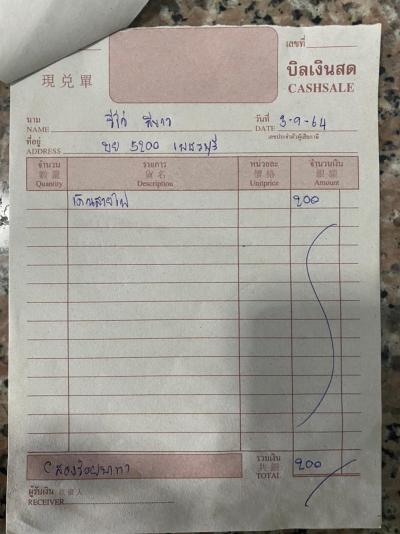 เลขที่
現兑單
บิลเงินสด
CASHSALE
นาม
NAME วีโก้ สีขาว
วันที่
DATE 3-9-64
เลขประจำตัวผู้เสียภาษี
ที่อยู่
ADDRESS บย 5200 เพชรบุรี
จำนวน รายการ หน่วยละ จำนวนเงิน
數量 貨名 價格 銀額
Quantity Description Unitprice Amount
เดินสายไฟ 200
รวมเงิน
共銀
TOTAL 200
สองร้อยบาท
ผู้รับเงิน 收銀人
RECEIVER